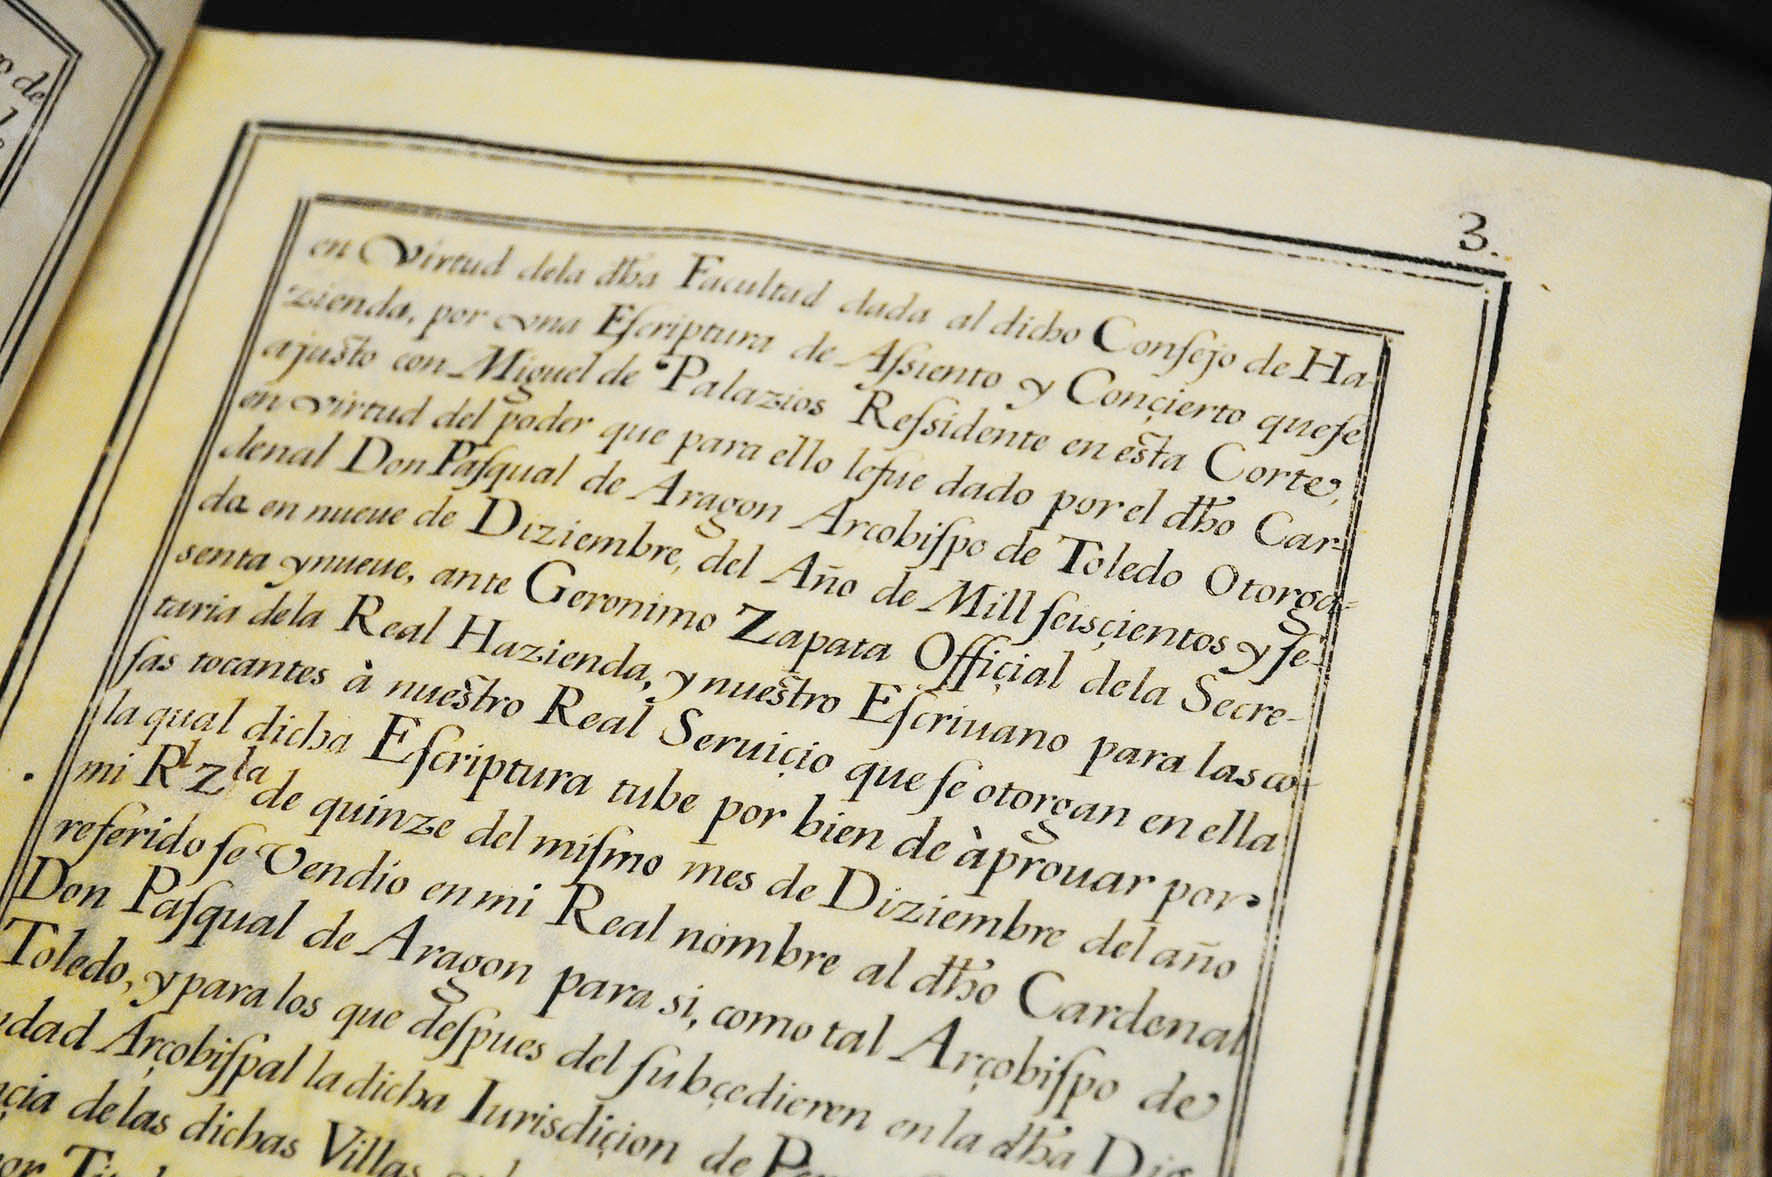 3.
en Virtud dela dha Facultad dada al dicho Conſejo de Ha-
zienda, por vna Eſcriptura de Aſsiento y Conçierto queſe
ajusto con Miguel de Palazios Reſsidente en esta Corte,
en virtud del poder que para ello lefue dado por el dho Car-
denal Don Paſqual de Aragon Arcobiſpo de Toledo Otorga-
da en nueue de Diziembre, del Año de Mill ſeisçientos y ſe-
senta y nueue, ante Geronimo Zapata Offiçial dela Secre-
taria dela Real Hazienda, y nuestro Eſcriuano para las co-
ſas tocantes à nuestro Real Seruiçio que ſe otorgan en ella
la qual dicha Eſcriptura tube por bien de àprouar por
mi Rl Zla de quinze del miſmo mes de Diziembre del año
referido ſe Vendio en mi Real nombre al dho Cardenal
Don Paſqual de Aragon para si, como tal Arçobiſpo de
Toledo, y para los que deſpues del ſubçedieren en la dha Dig
dad Arçobiſpal la dicha Iurisdiçion de
çia de las dichas Villas
de